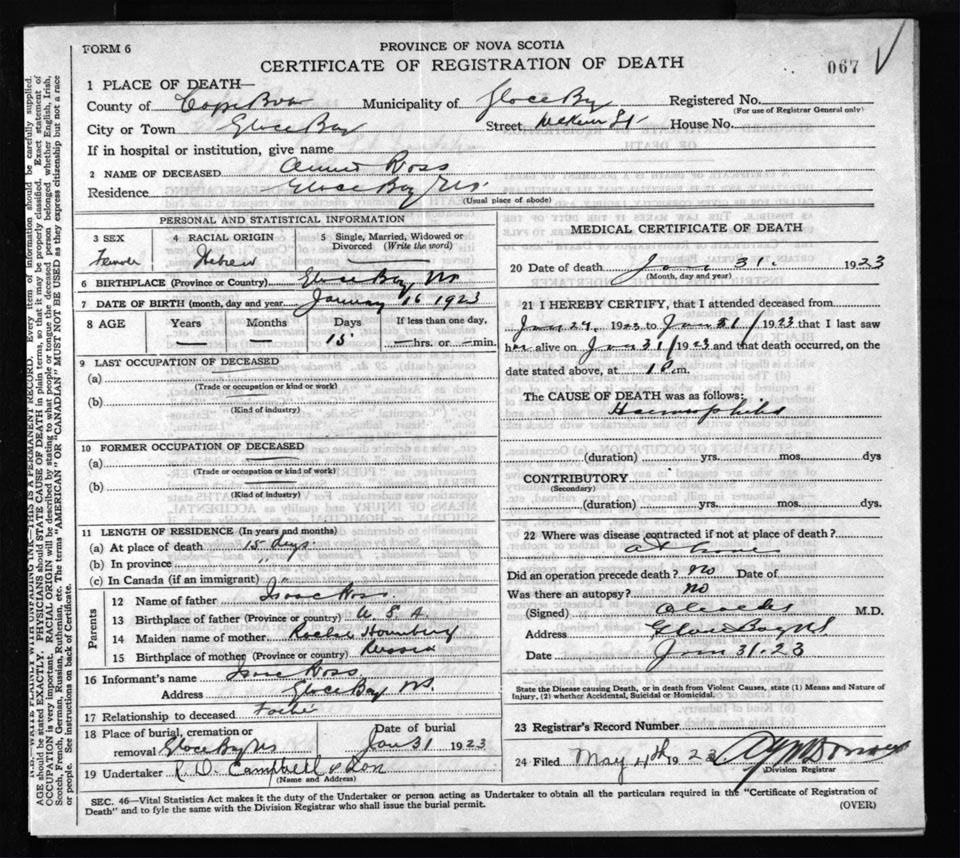 FORM 6
PROVINCE OF NOVA SCOTIA
CERTIFICATE OF REGISTRATION OF DEATH
067
1 PLACE OF DEATH—
County of Cape Breton Municipality of Glace Bay Registered No.
(For use of Registrar General only)
City or Town Glace Bay Street House No.
If in hospital or institution, give name
2 NAME OF DECEASED Ross
Residence Glace Bay NS.
(Usual place of abode)
PERSONAL AND STATISTICAL INFORMATION
3 SEX Female
4 RACIAL ORIGIN Hebrew
5 Single, Married, Widowed or Divorced (Write the word)
6 BIRTHPLACE (Province or Country) Glace Bay NS
7 DATE OF BIRTH (month, day and year) January 16 1923
8 AGE Years Months Days If less than one day,
— — 15 — hrs. or — min.
9 LAST OCCUPATION OF DECEASED
(a)
(Trade or occupation or kind or work)
(b)
(Kind of industry)
10 FORMER OCCUPATION OF DECEASED
(a)
(Trade or occupation or kind of work)
(b)
(Kind of industry)
11 LENGTH OF RESIDENCE (In years and months)
(a) At place of death 15 days
(b) In province " "
(c) In Canada (if an immigrant) "
Parents
12 Name of father Isaac Ross
13 Birthplace of father (Province or country) U. S. A
14 Maiden name of mother
15 Birthplace of mother (Province or country) Russia
16 Informant's name Isaac Ross
Address Glace Bay NS.
17 Relationship to deceased Father
18 Place of burial, cremation or removal Glace Bay NS
Date of burial Jan 31 1923
19 Undertaker R. D. Campbell & Son
(Name and Address)
MEDICAL CERTIFICATE OF DEATH
20 Date of death Jan. 31 1923
(Month, day and year)
21 I HEREBY CERTIFY, that I attended deceased from
Jan 29. 1923 to Jan 31/ 1923 that I last saw
her alive on Jan 31/ 1923 and that death occurred, on the
date stated above, at 1 P.m.
The CAUSE OF DEATH was as follows:
Haemophilia
(duration) yrs. mos. dys
CONTRIBUTORY
(Secondary)
(duration) yrs. mos. dys.
22 Where was disease contracted if not at place of death?
At home
Did an operation precede death? No Date of
Was there an autopsy? No
(Signed) M.D.
Address Glace Bay NS
Date Jan 31. 23
State the Disease causing Death, or in death from Violent Causes, state (1) Means and Nature of Injury, (2) whether Accidental, Suicidal or Homicidal.
23 Registrar's Record Number
24 Filed May 4th 1923
Division Registrar
SEC. 46—Vital Statistics Act makes it the duty of the Undertaker or person acting as Undertaker to obtain all the particulars required in the "Certificate of Registration of
Death" and to fyle the same with the Division Registrar who shall issue the burial permit.
(OVER)
WRITE PLAINLY WITH UNFADING INK—THIS IS A PERMANENT RECORD. Every item of information should be carefully supplied.
AGE should be stated EXACTLY. PHYSICIANS should STATE CAUSE OF DEATH in plain terms, so that it may be properly classified. Exact statement of
OCCUPATION is very important. RACIAL ORIGIN will be described by stating to what people or tongue the deceased person belonged whether English, Irish,
Scotch, French, German, Russian, Ruthenian, etc. The terms "AMERICAN" OR "CANADIAN" MUST NOT BE USED as they express citizenship but not a race
or people. See instructions on back of Certificate.